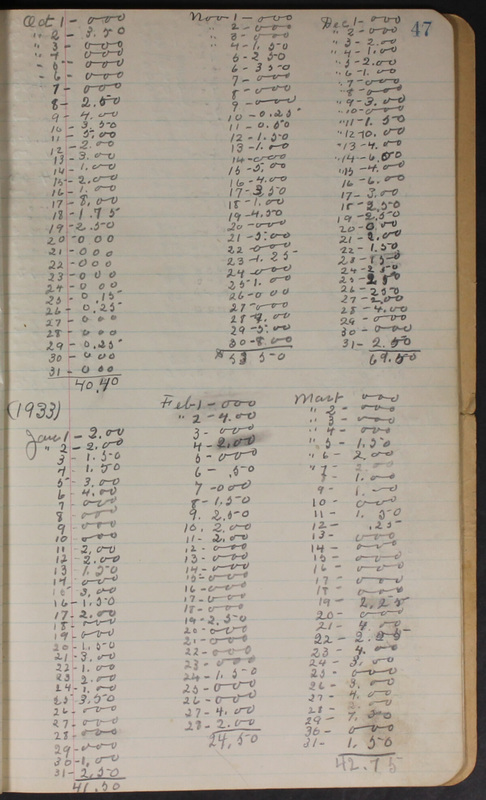 47
Oct 1 - 000
" 2 - 3.50
" 3 - 000
" 4 - 000
" 5 - 000
" 6 - 000
7 - 000
8 - 2.50
9 - 4.00
10 - 3.50
11 - 5.00
12 - 2.00
13 - 3.00
14 - 1.00
15 - 2.00
16 - 1.00
17 - 8.00
18 - 1.75
19 - 2.50
20 - 000
21 - 000
22 - 000
23 - 000
24 - 000
25 - 0.15
26 - 0.25
27 - 000
28 - 000
29 - 0.25
30 - 000
31 - 000
40.40
Nov 1 - 000
" 2 - 000
" 3 - 000
4 - 1.50
5 - 2.50
6 - 3.50
7 - 000
8 - 000
9 - 000
10 - 0.25
11 - 0.50
12 - 1.50
13 - 1.00
14 - 000
15 - 5.00
16 - 4.00
17 - 3.50
18 - 1.00
19 - 4.50
20 - 000
21 - 5.00
22 - 000
23 - 1.25
24 - 000
25 - 1.00
26 - 000
27 - 000
28 - 9.00
29 - 5.00
30 - 8.00
53 50
Dec 1 - 000
" 2 - 000
" 3 - 2.00
" 4 - 1.00
" 5 - 2.00
" 6 - 1.00
" 7 - 000
" 8 - 000
" 9 - 3.00
" 10 - 000
" 11 - 1.50
" 12 - 10.00
" 13 - 4.00
" 14 - 6.00
" 15 - 4.00
16 - 6.00
17 - 3.00
18 - 2.50
19 - 2.50
20 - 0.00
21 - 2.00
22 - 1.50
23 -
24 - 2.50
25 -
26 - 2.50
27 - 2.00
28 - 4.00
29 - 000
30 - 000
31 - 2.50
69.50
(1933)
Jan 1 - 2.00
" 2 - 2.00
3 - 1.50
4 - 1.50
5 - 3.00
6 - 4.00
7 - 000
8 - 000
9 - 000
10 - 000
11 - 2.00
12 - 2.00
13 - 1.50
14 - 000
15 - 3.00
16 - 1.50
17 - 2.00
18 - 000
19 - 000
20 - 1.50
21 - 3.00
22 - 1.00
23 - 2.00
24 - 1.00
25 - 3.50
26 - 000
27 - 000
28 - 000
29 - 000
30 - 1.00
31 - 2.50
41.50
Feb 1 - 000
" 2 - 4.00
3 - 000
4 - 2.00
5 - 000
6 - .50
7 - 000
8 - 1.50
9. 2.50
10. 2.00
11 - 2.00
12 - 000
13 - 000
14 - 000
15 - 000
16 - 000
17 - 000
18 - 000
19 - 2.50
20 - 000
21 - 000
22 - 000
23 - 000
24 - 1.50
25 - 000
26 - 000
27 - 4.00
28 - 2.00
24.50
Mar 1 000
" 2 - 000
" 3 - 000
" 4 - 000
" 5 - 1.50
" 6 - 2.00
" 7 - 2.00
8 - 1.00
9 - 1.00
10 - 000
11 - 1.50
12 - .25
13 - 000
14 - 000
15 - 000
16 - 000
17 - 000
18 - 000
19 - 2.25
20 - 000
21 - 4.00
22 - 2.25
23 - 4.00
24 - 3.00
25 - 000
26 - 3.00
27 - 4.00
28 -
29 - 7.50
30 - 000
31 - 1.50
42.75